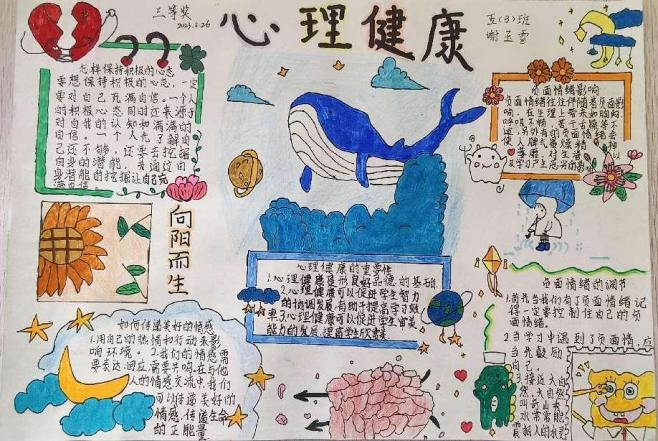 三等奖
2023.5.26
心理健康
五(3)班
谢玉雪
怎样保持积极的心态
要想保持积极的心态,一定
要对自己充满自信,一个人
的积极心态同时还来源于
对自我的认知和满满的
自信,一个人光了解自
己还不够,还要去挖掘
自身的潜能,
身潜能的挖掘让自己充
向阳而生
如何传递美好的情感
1.用自己的热情和行动来影
响环境。2.我们的情感需
要表达,回应,需要共鸣,在与他
人的情感交流中,我们
可以传递美好的
情感,传递生命
的正能量
心理健康的重要性
1.心理健康是形良好品德的基础
2.心理健康可以促进学生智力
的协调发展,有助于提高学习效
率3.心理健康可以促进学生审美
能力的发展,提高学生欣赏美
负面情绪影响
负面情绪往往伴随着负面影
响,在生理上看来如胸闷,
负面情绪的调节
1.首先当我们有了负面情绪记
得一定要控制住自己的负
面情绪。
2.当学习中遇到了负面情,应
当先鼓励
自己,
3.接近大自
然,大自然